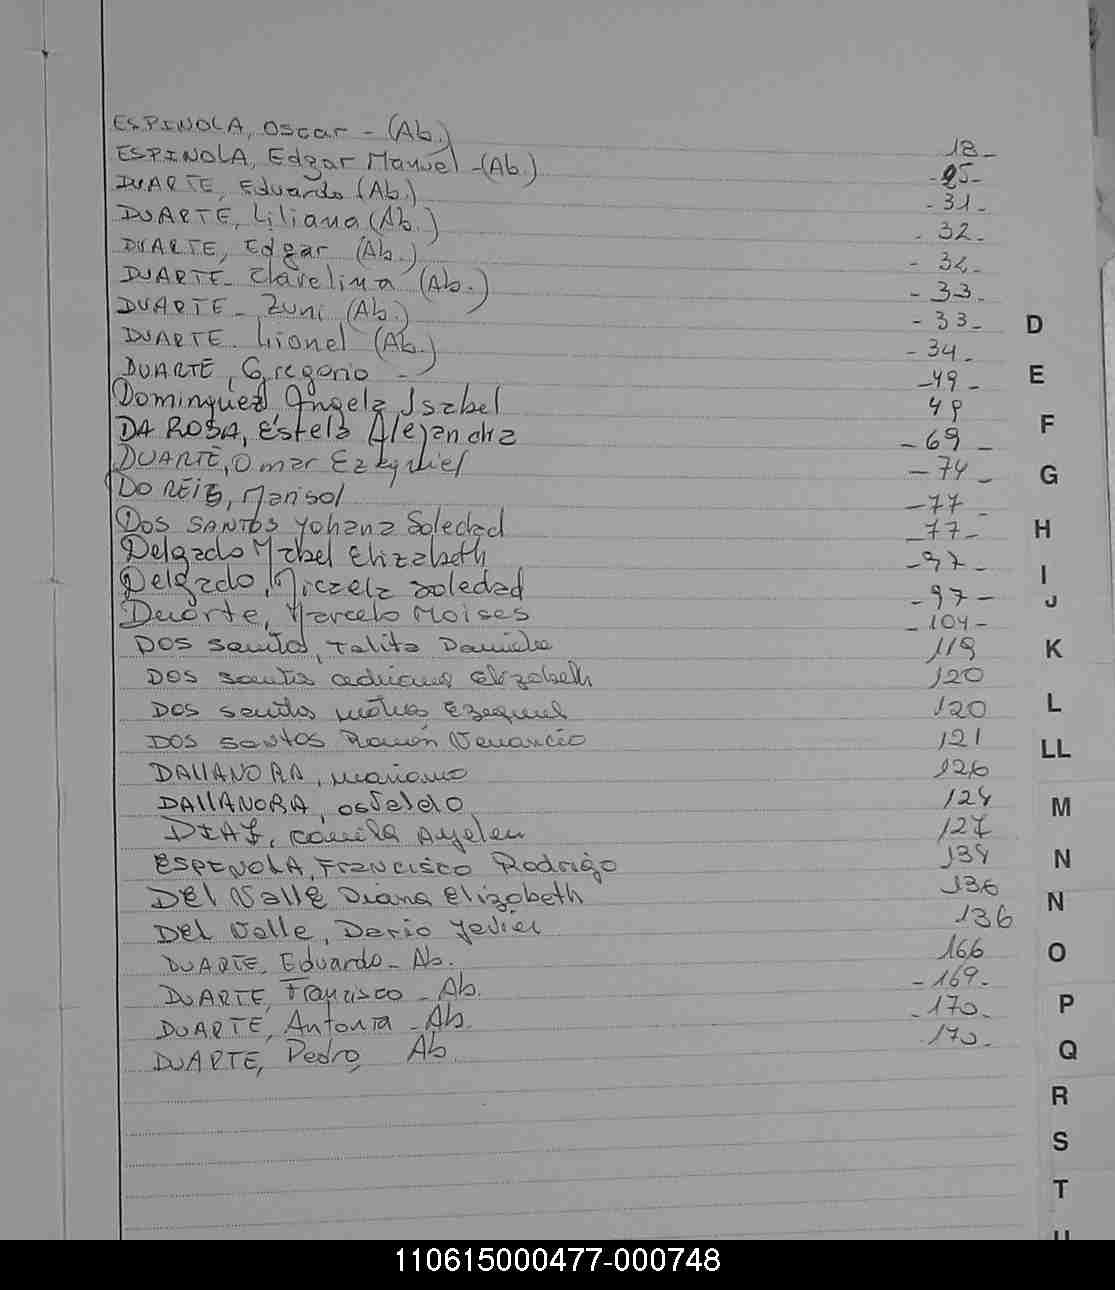 ESPINOLA, Oscar - (Ab.) 18-
ESPINOLA, Edgar Manuel - (Ab.) -25-
DUARTE, Eduardo (Ab.) -31-
DUARTE, Liliana (Ab.) - 32-
DUARTE, Edgar (Ab.) - 32-
DUARTE - Clavelina (Ab.) - 33-
DUARTE - Zuni (Ab.) - 33-
DUARTE. Lionel (Ab.) - 34-
DUARTE, Gregorio - -49-
Dominguez, Angela Isabel 49
DA ROSA, Estela Alejandra - 69 -
DUARTE, Omar Ezequiel - 74 -
DO REIS, Marisol - 77 -
DOS SANTOS Yohana Soledad -77-
Delgado Mabel Elizabeth - 97 -
Delgado, Micaela Soledad - 97 -
Duarte, Marcelo Moises - 104 -
DOS Santos, Talita Daniela 119
DOS Santos Adriana Elizabeth 120
DOS Santos Matias Ezequiel 120
DOS Santos Ramón Venancio 121
DALLANORA, Mariano 126
DALLANORA, Osvaldo
DIAZ, Camila Ayelen 127
ESPINOLA, Francisco Rodrigo 134
DEl Valle Diana Elizabeth 136
DEl Valle, Dario Javier 136
DUARTE, Eduardo - Ab. 166
DUARTE, Francisco - Ab. - 169-
DUARTE, Antonia - Ab. - 170-
DUARTE, Pedro, Ab 170-
D
E
F
G
H
I
J
K
L
LL
M
N
N
O
P
Q
R
S
T
110615000477-000748